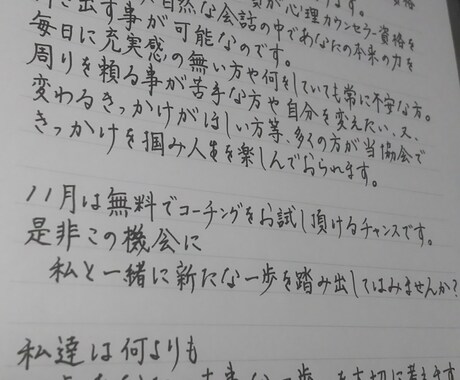 が心理カウンセラー資格を
き出す事が可能なのです。自然な会話の中であなたの本来の力を
毎日に充実感の無い方や何をしていても常に不安な方。
周りを頼る事が苦手な方や自分を変えたい、又、
変わるきっかけがほしい方等、多くの方が当協会で
きっかけを掴み人生を楽しんでおられます。
11月は無料でコーチングをお試し頂けるチャンスです。
是非この機会に
私と一緒に新たな一歩を踏み出してはみませんか?
私達は何よりも